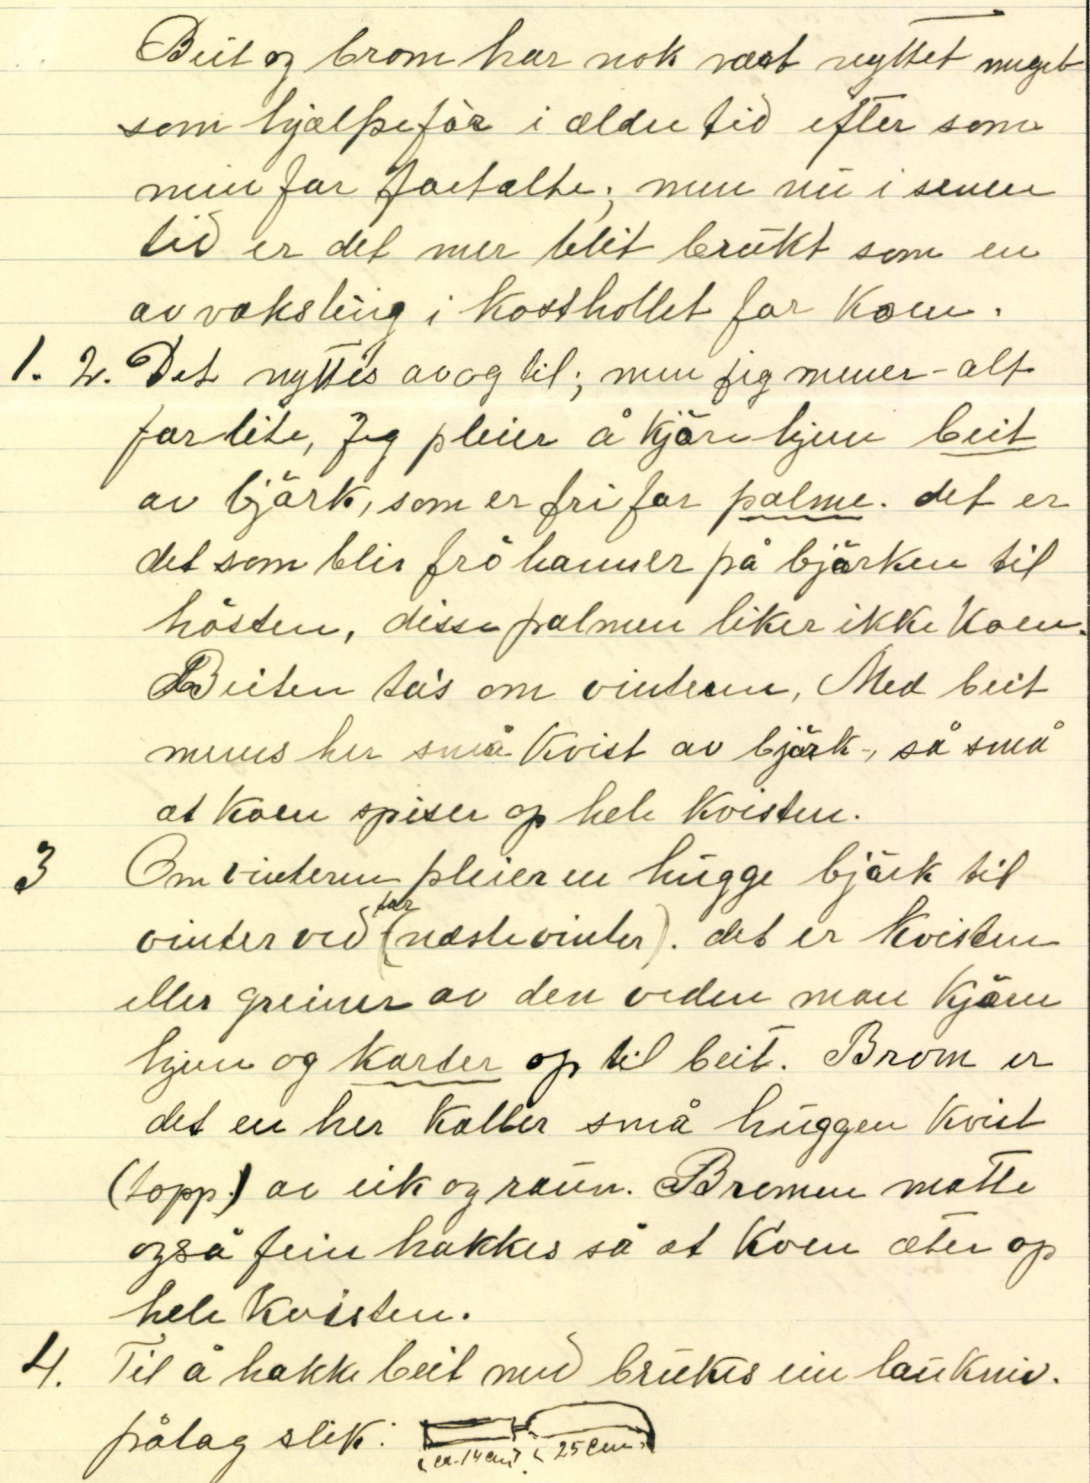 Beit og brom har nok vært nyttet meget
som hjælpefór i ældre tid efter som
min far fortalte; men nu i senere
tid er det mer blit brukt som en
avveksling i kosthollet for Koen.
1. 2. Det nyttes av og til; men jeg mener - alt
for lite, Jeg pleier å kjøre hjem beit
av bjørk, som er fri for palme. det er
det som blir frö hanner på bjørken til
hösten, disse palmen liker ikke Koen.
Beiten ta's om vinteren, Med beit
menes her små Kvist av bjørk -, så små
at Koen spiser op hele Kvisten.
3 Om vinteren pleier en hugge bjørk til
vinter ved for (næste vinter). det er Kvisten
eller greiner av den veden man Kjører
hjem og karter op til beit. Brom er
det en her Kaller små huggen Kvist
(topp.) av eik og raun. Bromen måtte
også fein hakkes så at Koen æter op
hele Kvisten.
4. Til å hakke beit med brukes ein lauvkniv.
pålag slik:
ca. 14 cm 25 cm